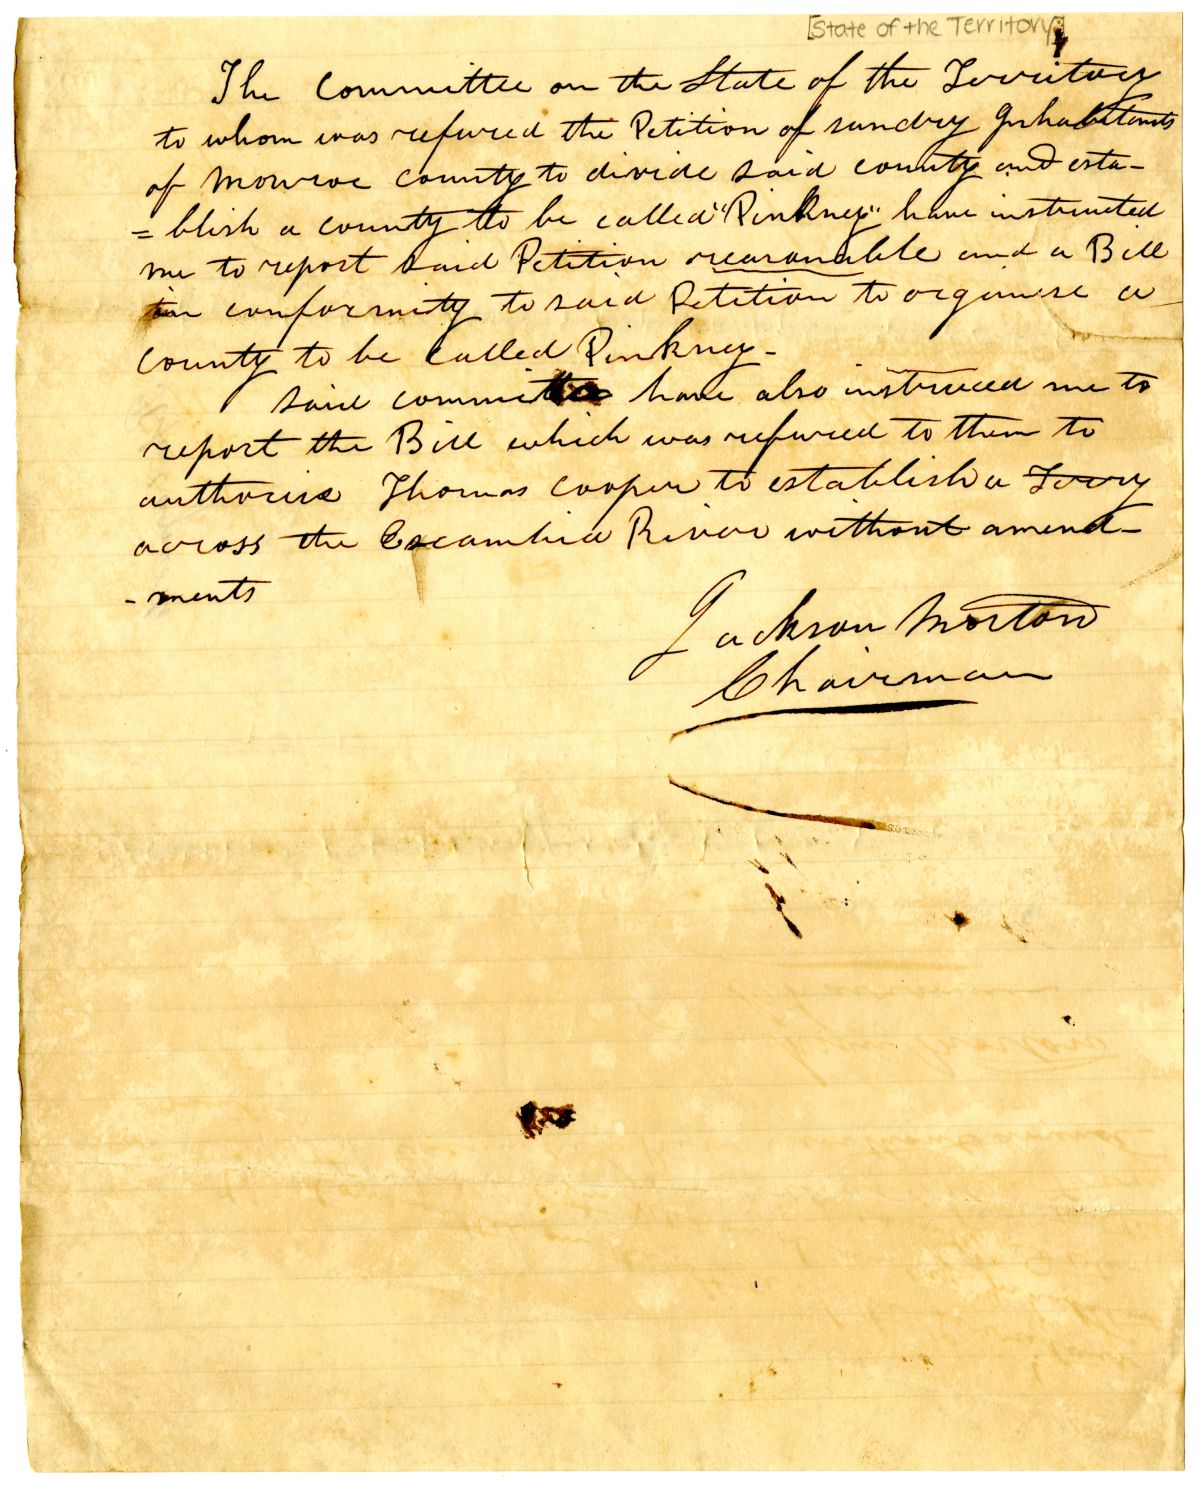 [State of the Territory]
The Committee on the State of the Territory
to whom was refured the Petition of sundry Inhabitants
of Monroe County to divide said county and esta-
= blish a county to be called "Pinkney" have instructed
me to report said Petition reasonable and a Bill
in conformity to said Petition to organise a
county to be called Pinkney-
Said committee have also instruced me to
report the Bill which was refured to them to
authorise Thomas Cooper to establish a Ferry
across the Escambia River without amend-
- ments
Jackson Morton
Chairman